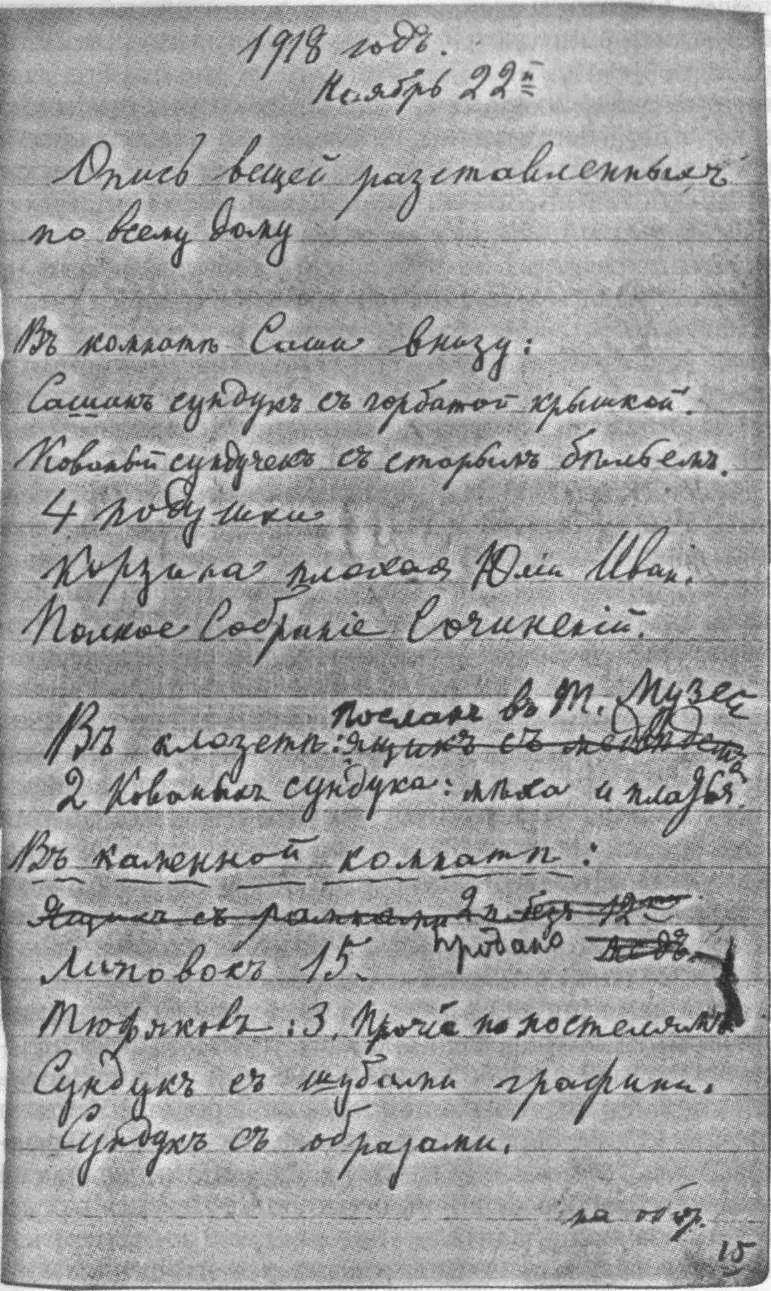 1918 годъ.
Ноябрь 22й
Опись вещей разставленныхъ
по всему дому
Въ комнатѣ Саши внизу:
Сашинъ сундукъ съ горбатой крышкой.
Кованый сундучекъ съ старымъ бѣльемъ.
4 подушки
Корзина плохая Юліи Иван.
Полное Собраніе Сочиненій.
посланъ въ Т. Музей
Въ клозетѣ: ящикъ съ
2 Кованыхъ сундука: мѣха и платья.
Въ каменной комнатѣ:
Ящикъ съ рамками 2 п. безъ 12
Липовокъ 15. продано медъ.
Тюфяковъ: 3, прочіе по постелямъ
Сундукъ съ шубами графини.
Сундукъ съ образами.
на обор.
15